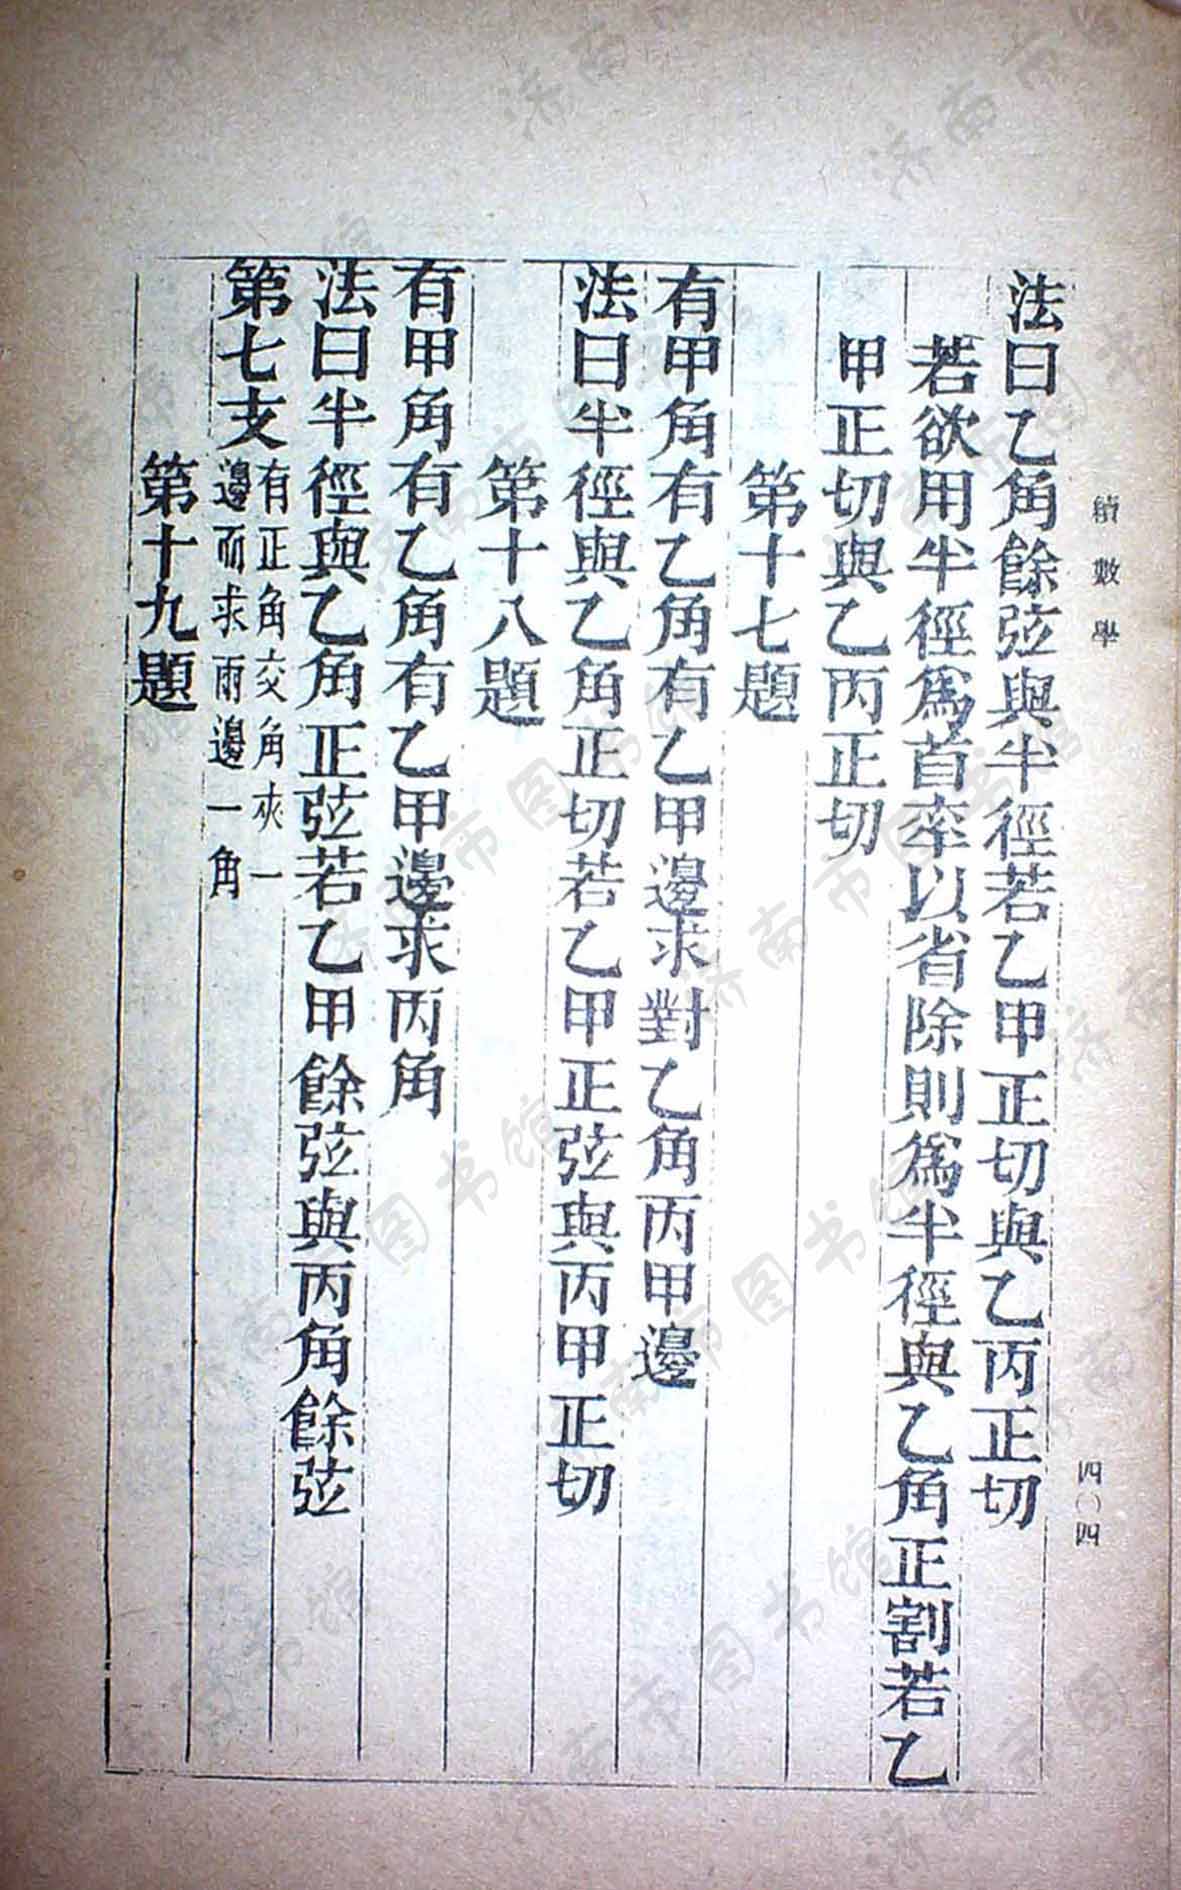 續數學
四〇四
法曰乙角餘弦與半徑若乙甲正切與乙丙正切
若欲用半徑爲首率以省除則爲半徑與乙角正割若乙
甲正切與乙丙正切
第十七題
有甲角有乙角有乙甲邊求對乙角丙甲邊
法曰半徑與乙角正切若乙甲正弦與丙甲正切
第十八題
有甲角有乙角有乙甲邊求丙角
法曰半徑與乙角正弦若乙甲餘弦與丙角餘弦
第七支
有正角交角夾一
邊而求兩邊一角
第十九題
济南市图书馆